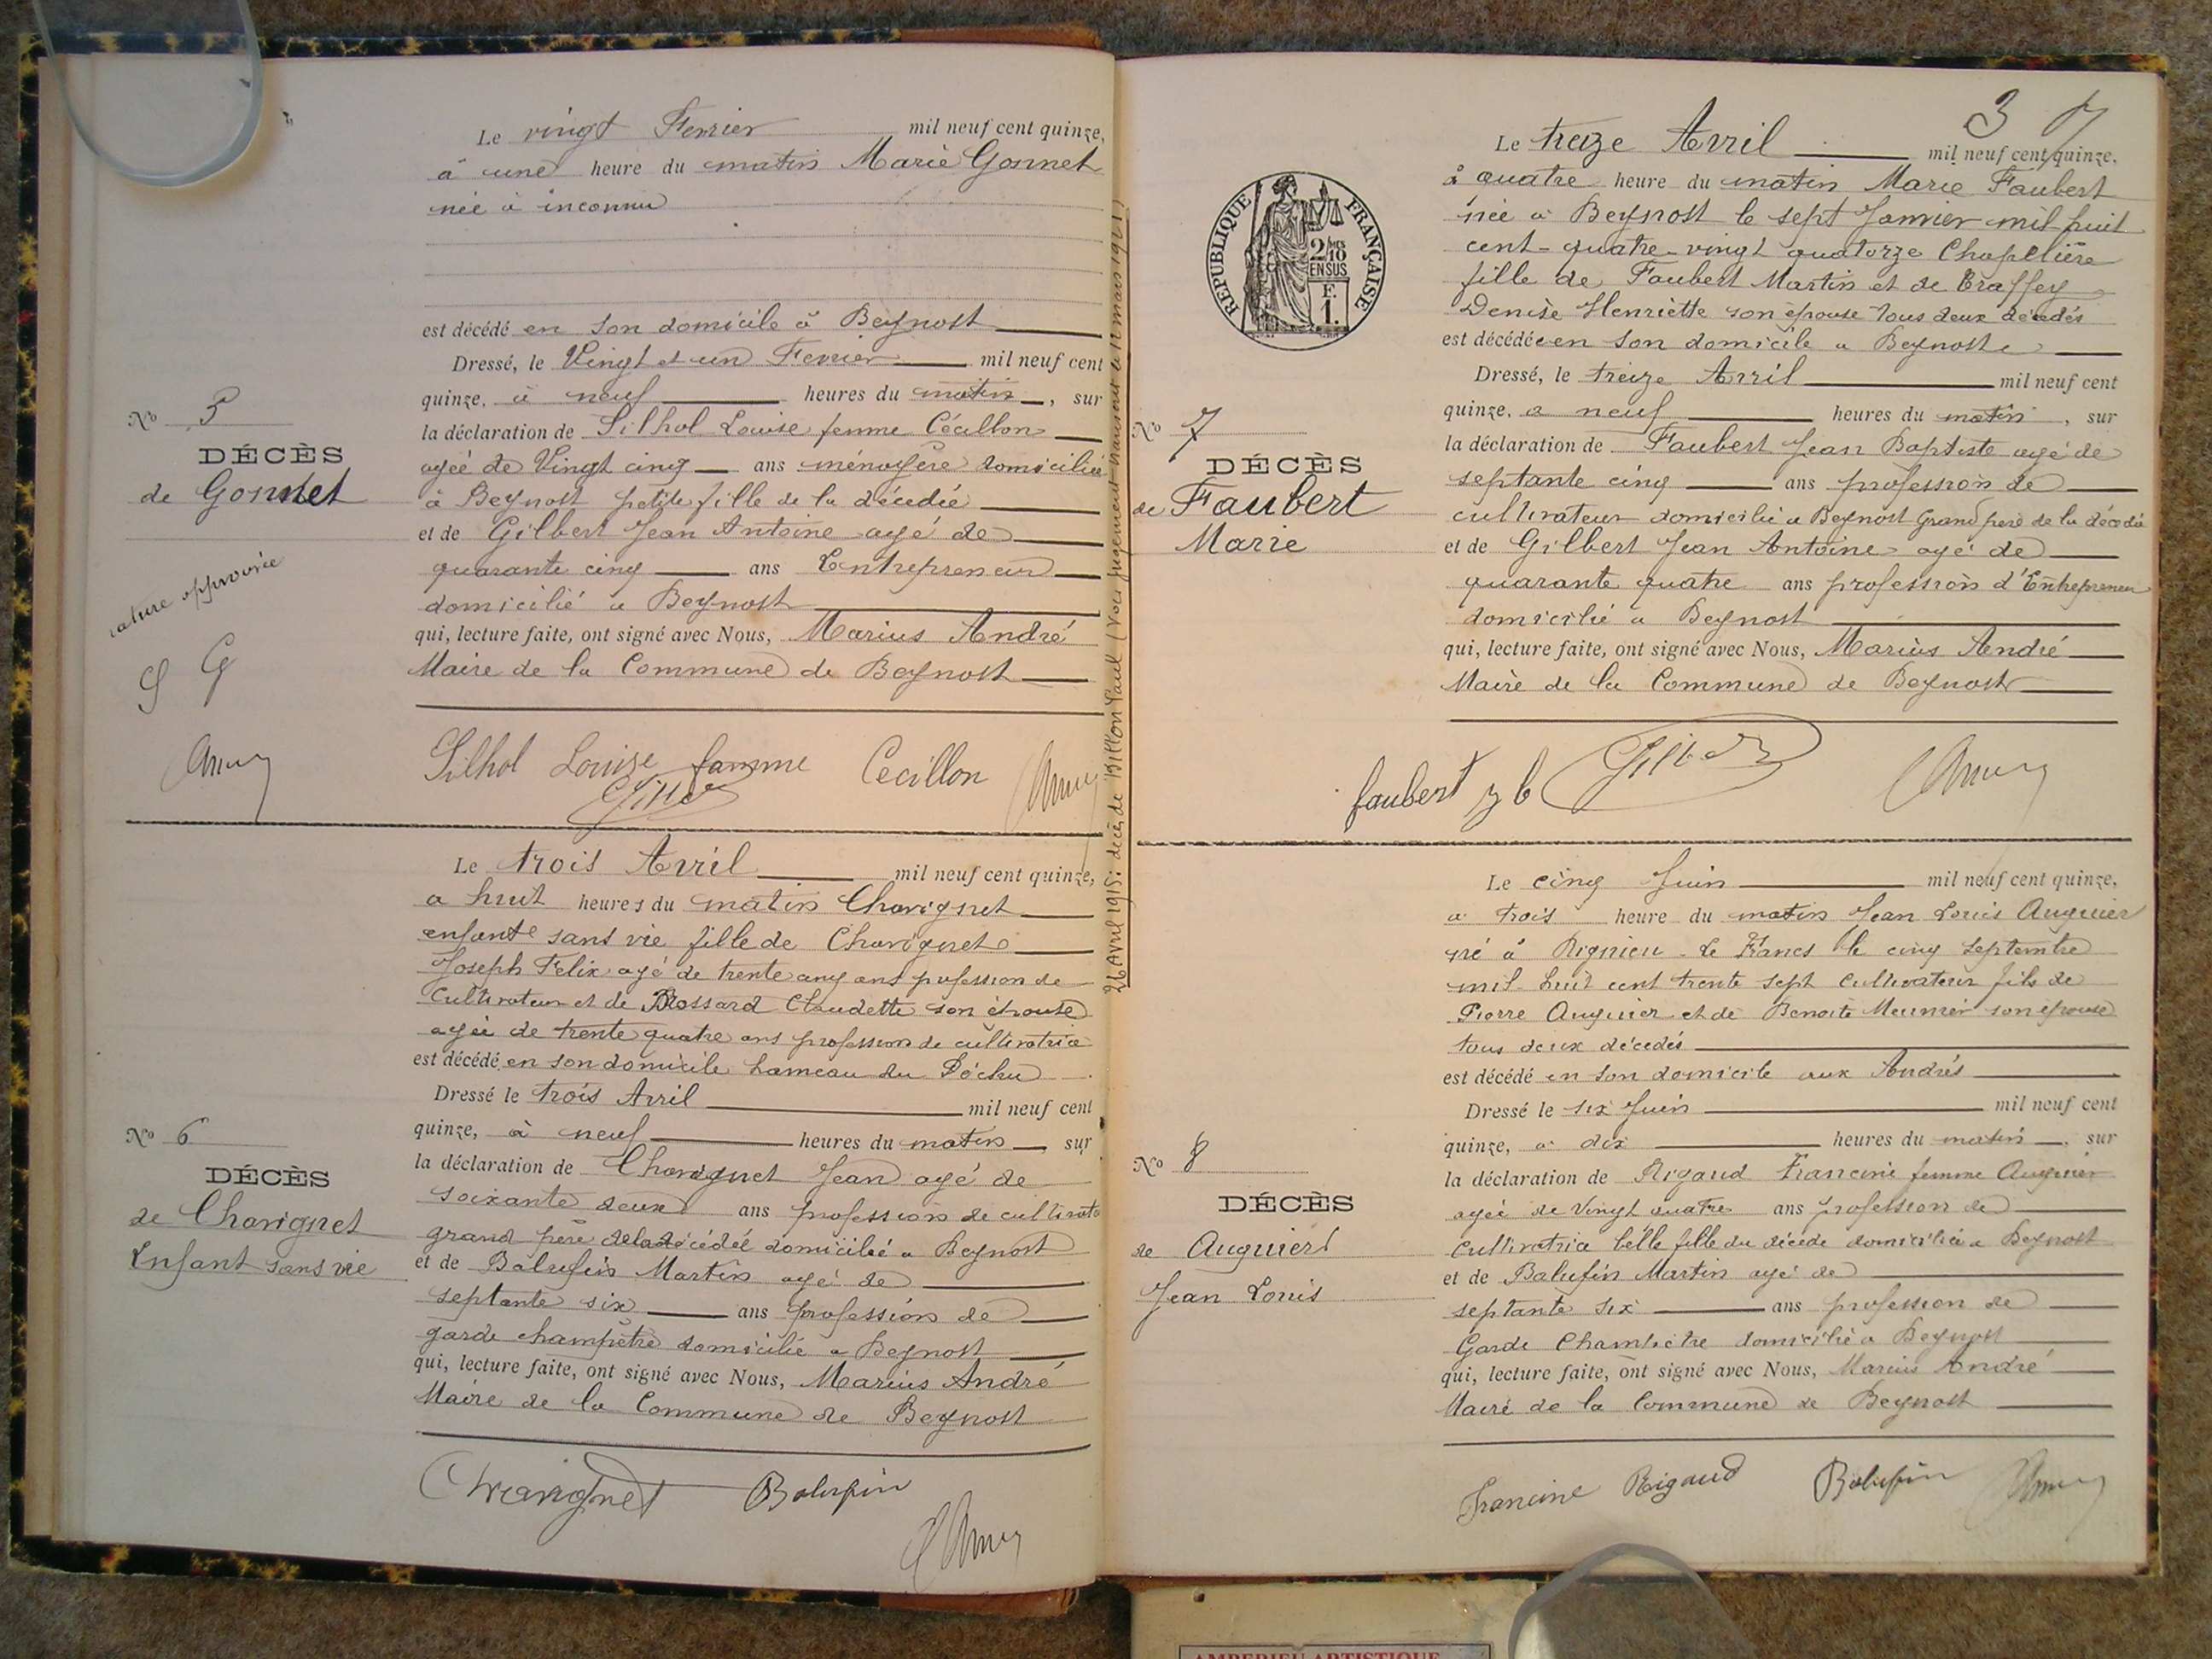 Le vingt Fevrier mil neuf cent quinze,
à une heure du matin Marie Gonnet
née à inconnu
est décédé en son domicile à Beynost
Dressé, le Vingt et un Fevrier mil neuf cent
quinze, à neuf heures du matin, sur
la déclaration de Silhol Louise femme Cécillon
agée de Vingt cinq ans ménagère domiciliée
à Beynost petite fille de la décedée
et de Gilbert Jean Antoine agé de
quarante cinq ans Entrepreneur
domicilié a Beynost
qui, lecture faite, ont signé avec Nous, Marius André
Maire de la Commune de Beynost
Nº 5
DÉCÈS
de Gonnet
rature approuvée
S G
Silhol Louise famme Cecillon
Le trois Avril mil neuf cent quinze,
a huit heures du matin Chavignet
enfante sans vie fille de Chavignet
Joseph Felix agé de trente cinq ans profession de
Cultivateur et de Brossard Claudette son épouse
agée de trente quatre ans profession de cultivatrice
est décédé en son domicile hameau du Péchu
Dressé le trois Avril mil neuf cent
quinze, à neuf heures du matin, sur
la déclaration de Chavignet Jean agé de
soixante deux ans profession de cultivate
grand père de la décédée domicilié a Beynost
et de Balufin Martin agé de
septante six ans profession de
garde champêtre domicilié a Beynost
qui, lecture faite, ont signé avec Nous, Marius André
Maire de la Commune de Beynost
Nº 6
DÉCÈS
de Chavignet
Enfant sans vie
Chavignet Balufin
26 Avril 1915: décès de Billon Paul (voir jugement transcrit le 12 mars 1921)
3 7
RÉPUBLIQUE FRANÇAISE
2/10
EN SUS
F.
1.
Le treize Avril mil neuf cent quinze,
à quatre heure du matin Marie Faubert
née a Beynost le sept Janvier mil huit
cent-quatre-vingt quatorze Chapelière
fille de Faubert Martin et de Traffey
Denise Henriette son épouse tous deux décedés
est décédée en son domicile a Beynost
Dressé, le treize Avril mil neuf cent
quinze, a neuf heures du matin, sur
la déclaration de Faubert Jean Baptiste agé de
septante cinq ans profession de
cultivateur domicilié a Beynost Grand père de la décedée
et de Gilbert Jean Antoine agé de
quarante quatre ans profession d'Entrepreneur
domicilié a Beynost
qui, lecture faite, ont signé avec Nous, Marius André
Maire de la Commune de Beynost
Nº 7
DÉCÈS
de Faubert
Marie
faubert j b
Le cinq Juin mil neuf cent quinze,
a trois heure du matin Jean Louis Auguier
né à Rignieu-le Franc le cinq Septembre
mil-huit cent trente sept Cultivateur fils de
Pierre Auguier et de Benoite Meunier son épouse
tous deux décedés
est décédé en son domicile aux Andrés
Dressé le six Juin mil neuf cent
quinze, a dix heures du matin, sur
la déclaration de Rigaud Francine femme Auguier
agée de Vingt quatre ans profession de
Cultivatrice belle fille du décédé domiciliée a Beynost
et de Balufin Martin agé de
septante six ans profession de
Garde Champetre domicilié a Beynost
qui, lecture faite, ont signé avec Nous, Marius André
Maire de la Commune de Beynost
Nº 8
DÉCÈS
de Auguier
Jean Louis
Francine Rigaud Balufin
AMBERIEU ARTISTIQUE